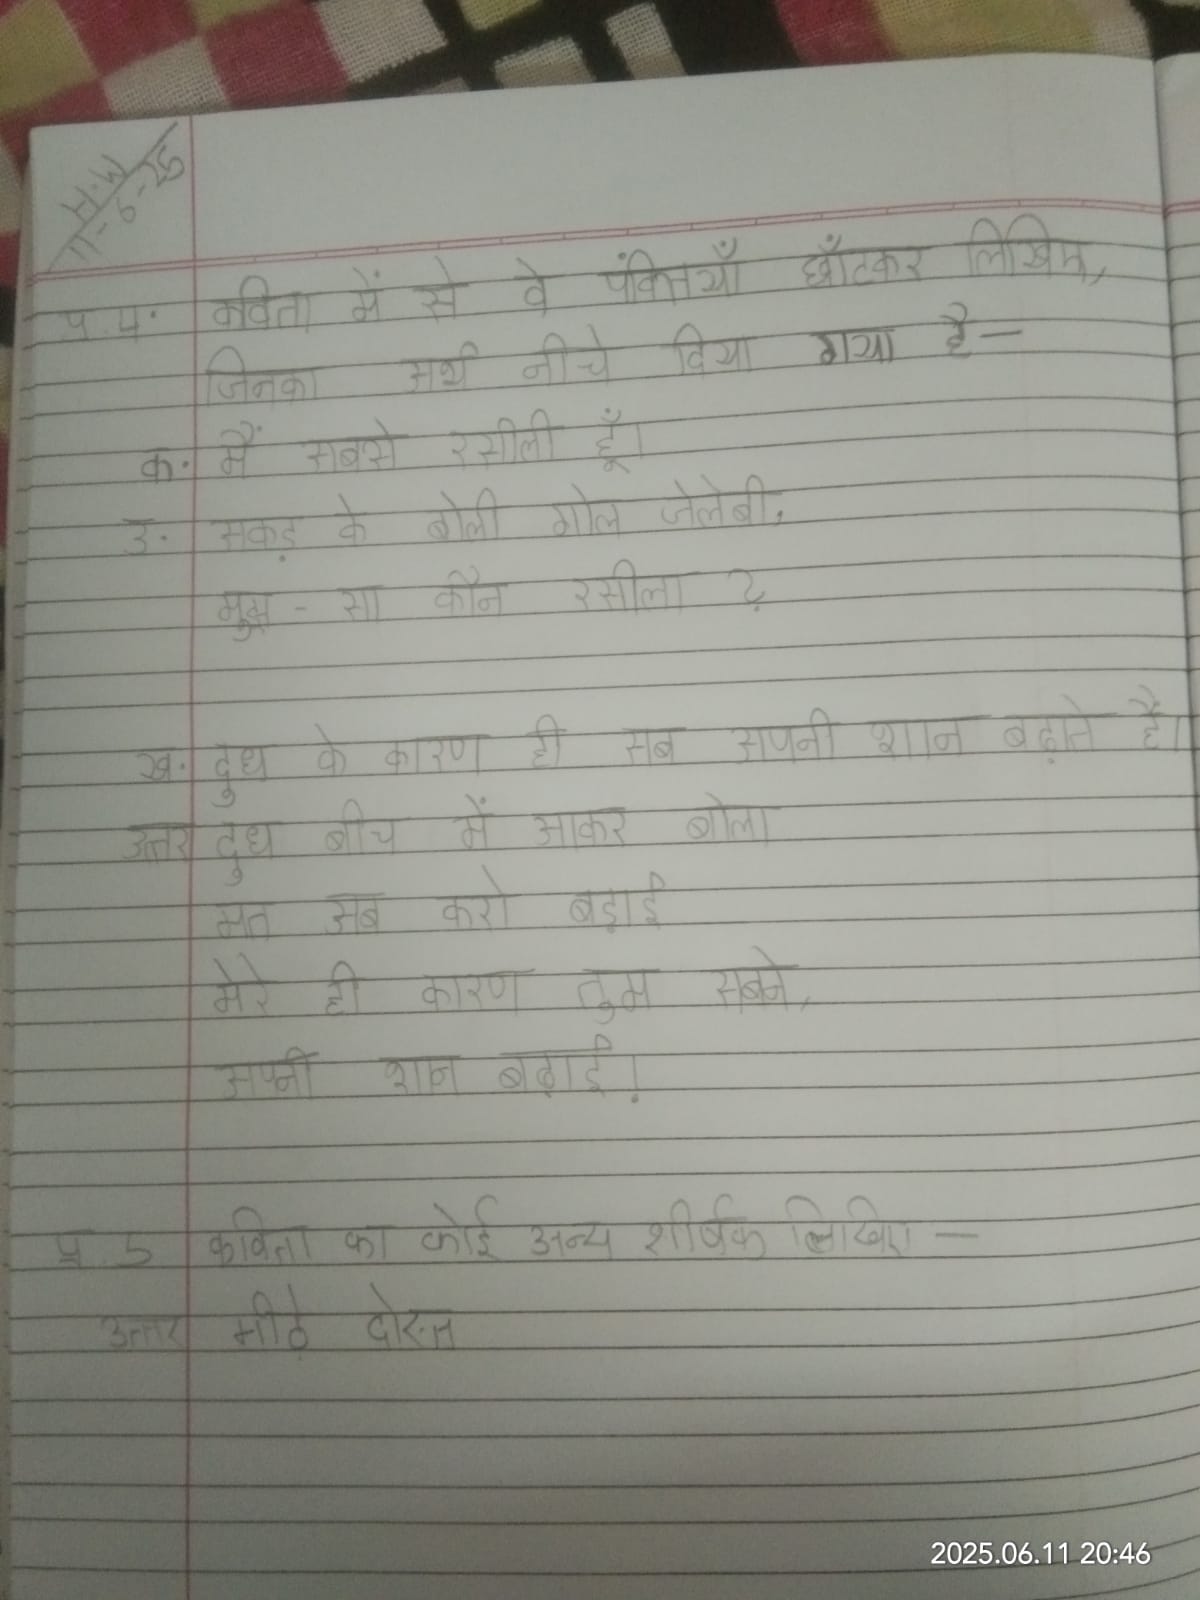 H.W
11-6-25
प्र.4. कविता में से वे पंक्तियाँ छाँटकर लिखिए,
जिनका अर्थ नीचे दिया गया है—
क. मैं सबसे रसीली हूँ।
उ. अकड़ के बोली गोल जेलेबी,
मुझ - सा कौन रसीला ?
ख. दुध के कारण ही सब अपनी शान बढ़ाते है।
उत्तर दुध बीच में आकर बोला
मत अब करो बड़ाई
मेरे ही कारण तुम सबने,
अपनी शान बढ़ाई!
प्र.5 कविता का कोई अन्य शीर्षक लिखिए —
उत्तर मीठे दोस्त
2025.06.11 20:46